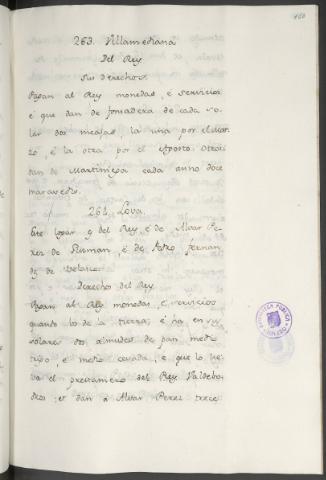 263. Villamediana
Del Rey
Sus derechos.
Pagan al Rey monedas, é servicios
é que dan de fonsadera de cada so-
lar dos meajas, la una por el Mar-
zo, é la otra por el Agosto. Otrosi
dan de Martiniega cada anno doce
maravedis.
264. Lova.
Este logar es del Rey, é de Alvar Pe-
rez de Gusman, é de Pedro Fernan-
dez de Velasco.
Derecho del Rey
Pagan al Rey monedas, é servicios
quando los de la tierra, é ha en
solares dos almudes de pan medio
trigo, é medio cevada, é que lo lie-
va el prestamero del Rey. Valdebo-
dres: et dan á Alvar Perez trece